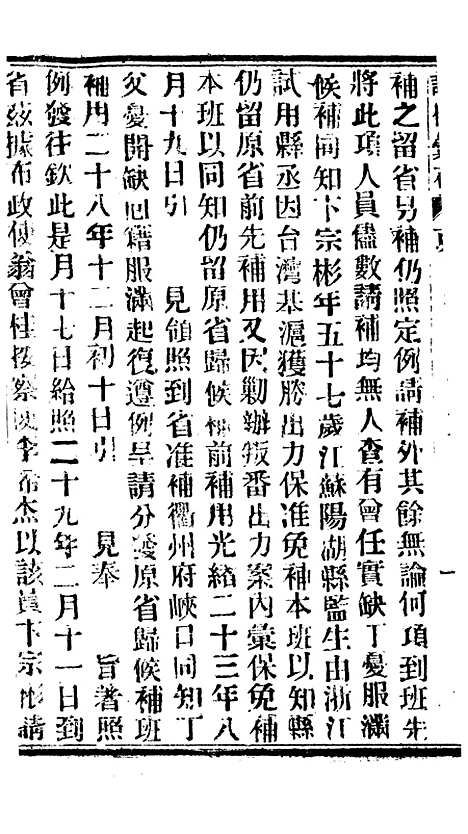 補之留省另補仍照定例請補外其餘無論何項到班先
將此項人員儘數請補均無人查有曾任實缺丁憂服滿
候補同知卞宗彬年五十七歲江蘇陽湖縣監生由浙江
試用縣丞因台灣基滬獲勝出力保准免補本班以知縣
仍留原省前先補用又因勦辦叛番出力案內彙保免補
本班以同知仍留原省歸候補前補用光緒二十三年八
月十九日引 見領照到省准補衢州府峽口同知丁
父憂開缺回籍服滿起復遵例呈請分發原省歸候補班
補用二十八年十二月初十日引 見奉 旨著照
例發往欽此是月十七日給照二十九年二月十一日到
省茲據布政使翁曾桂按察使李希杰以該員卞宗彬請